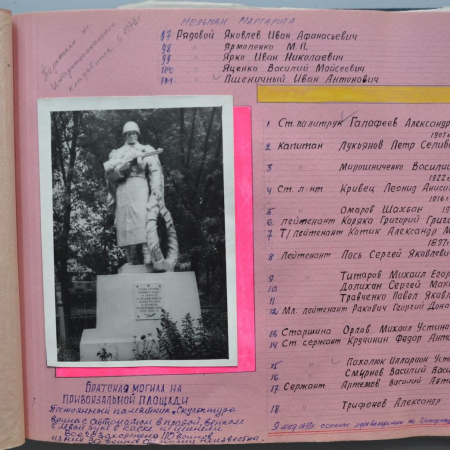 МЕЛЬМАН МАРГАРИТА
97 Рядовой Яковлев Иван Афанасьевич
98 " Ярмоленко М.П.
99 " Ярко Иван Николаевич
100 " Яценко Василий Моисеевич
101 " Пшеничный Иван Антонович
1 Ст. политрук Галафеев Александр
2 Капитан Лукьянов Петр Селив
3 Мирошниченко Василий
1922
4 Ст. л-нт Кривец Леонид Аниси
1916
5 Омаров Шахбан
6 Лейтенант Коряка Григорий Григ
7 Т/лейтенант Котик Александр М
1897
8 Лейтенант Лось Сергей Яковлевич
9 Титаров Михаил Егор
10 Долихан Сергей Мак
11 Травченко Павел Яковл
12 Мл. лейтенант Ракович Георгий Дона
13 Старшина Орлов Михаил Устин
14 Ст. сержант Кручинин Федор Анто
15 " Пахолюк Илларион Устин
16 " Смирнов Василий Вас
17 Сержант Артемов Василий Авто
18 Трифонов Александр
БРАТСКАЯ МОГИЛА НА
ПРИВОКЗАЛЬНОЙ ПЛОЩАДИ
Постоянный памятник. Скульптура
воина с автоматом в правой, венком
в левой руке в каске и шинели
Всего захоронено 110 воинов
из них 30 воинов фамилии неизвестны.